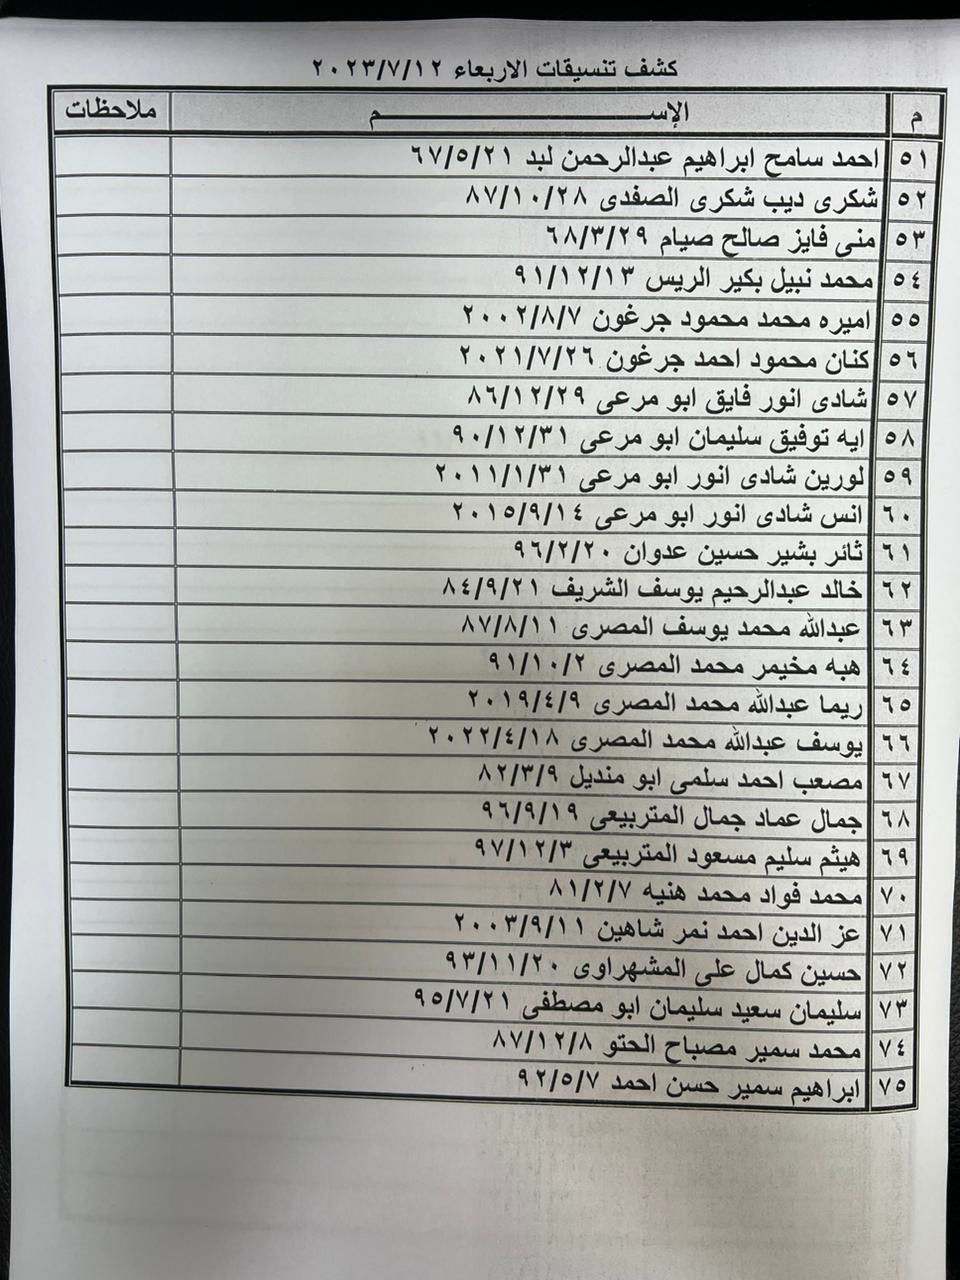 كشف تنسيقات الاربعاء ٢٠٢٣/٧/١٢
م الإســـــــــــــم ملاحظات
٥١ احمد سامح ابراهيم عبدالرحمن لبد ٦٧/٥/٢١
٥٢ شكرى ديب شكرى الصفدى ٨٧/١٠/٢٨
٥٣ منى فايز صالح صيام ٦٨/٣/٢٩
٥٤ محمد نبيل بكير الريس ٩١/١٢/١٣
٥٥ اميره محمد محمود جرغون ٢٠٠٢/٨/٧
٥٦ كنان محمود احمد جرغون ٢٠٢١/٧/٢٦
٥٧ شادى انور فايق ابو مرعى ٨٦/١٢/٢٩
٥٨ ايه توفيق سليمان ابو مرعى ٩٠/١٢/٣١
٥٩ لورين شادى انور ابو مرعى ٢٠١١/١/٣١
٦٠ انس شادى انور ابو مرعى ٢٠١٥/٩/١٤
٦١ ثائر بشير حسين عدوان ٩٦/٢/٢٠
٦٢ خالد عبدالرحيم يوسف الشريف ٨٤/٩/٢١
٦٣ عبدالله محمد يوسف المصرى ٨٧/٨/١١
٦٤ هبه مخيمر محمد المصرى ٩١/١٠/٢
٦٥ ريما عبدالله محمد المصرى ٢٠١٩/٤/٩
٦٦ يوسف عبدالله محمد المصرى ٢٠٢٢/٤/١٨
٦٧ مصعب احمد سلمى ابو منديل ٨٢/٣/٩
٦٨ جمال عماد جمال المتربيعى ٩٦/٩/١٩
٦٩ هيثم سليم مسعود المتربيعى ٩٧/١٢/٣
٧٠ محمد فواد محمد هنيه ٨١/٢/٧
٧١ عز الدين احمد نمر شاهين ٢٠٠٣/٩/١١
٧٢ حسين كمال على المشهراوى ٩٣/١١/٢٠
٧٣ سليمان سعيد سليمان ابو مصطفى ٩٥/٧/٢١
٧٤ محمد سمير مصباح الحتو ٨٧/١٢/٨
٧٥ ابراهيم سمير حسن احمد ٩٢/٥/٧